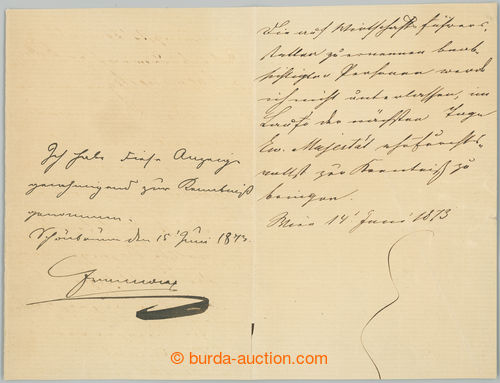 Die auf Wirtschaftsführers-
stellen zu ernennen beab-
sichtigten Personen werde
ich nicht unterlassen, im
Laufe der nächsten Tage
Ew. Majestät ehrfurchts-
vollst zur Kenntniß zu
bringen.
Wien 14 Juni 1873
Ich habe diese Anzeige
genehmigend zur Kenntniß
genommen.
Schönbrunn den 15 Juni 1873.
© burda-auction.com